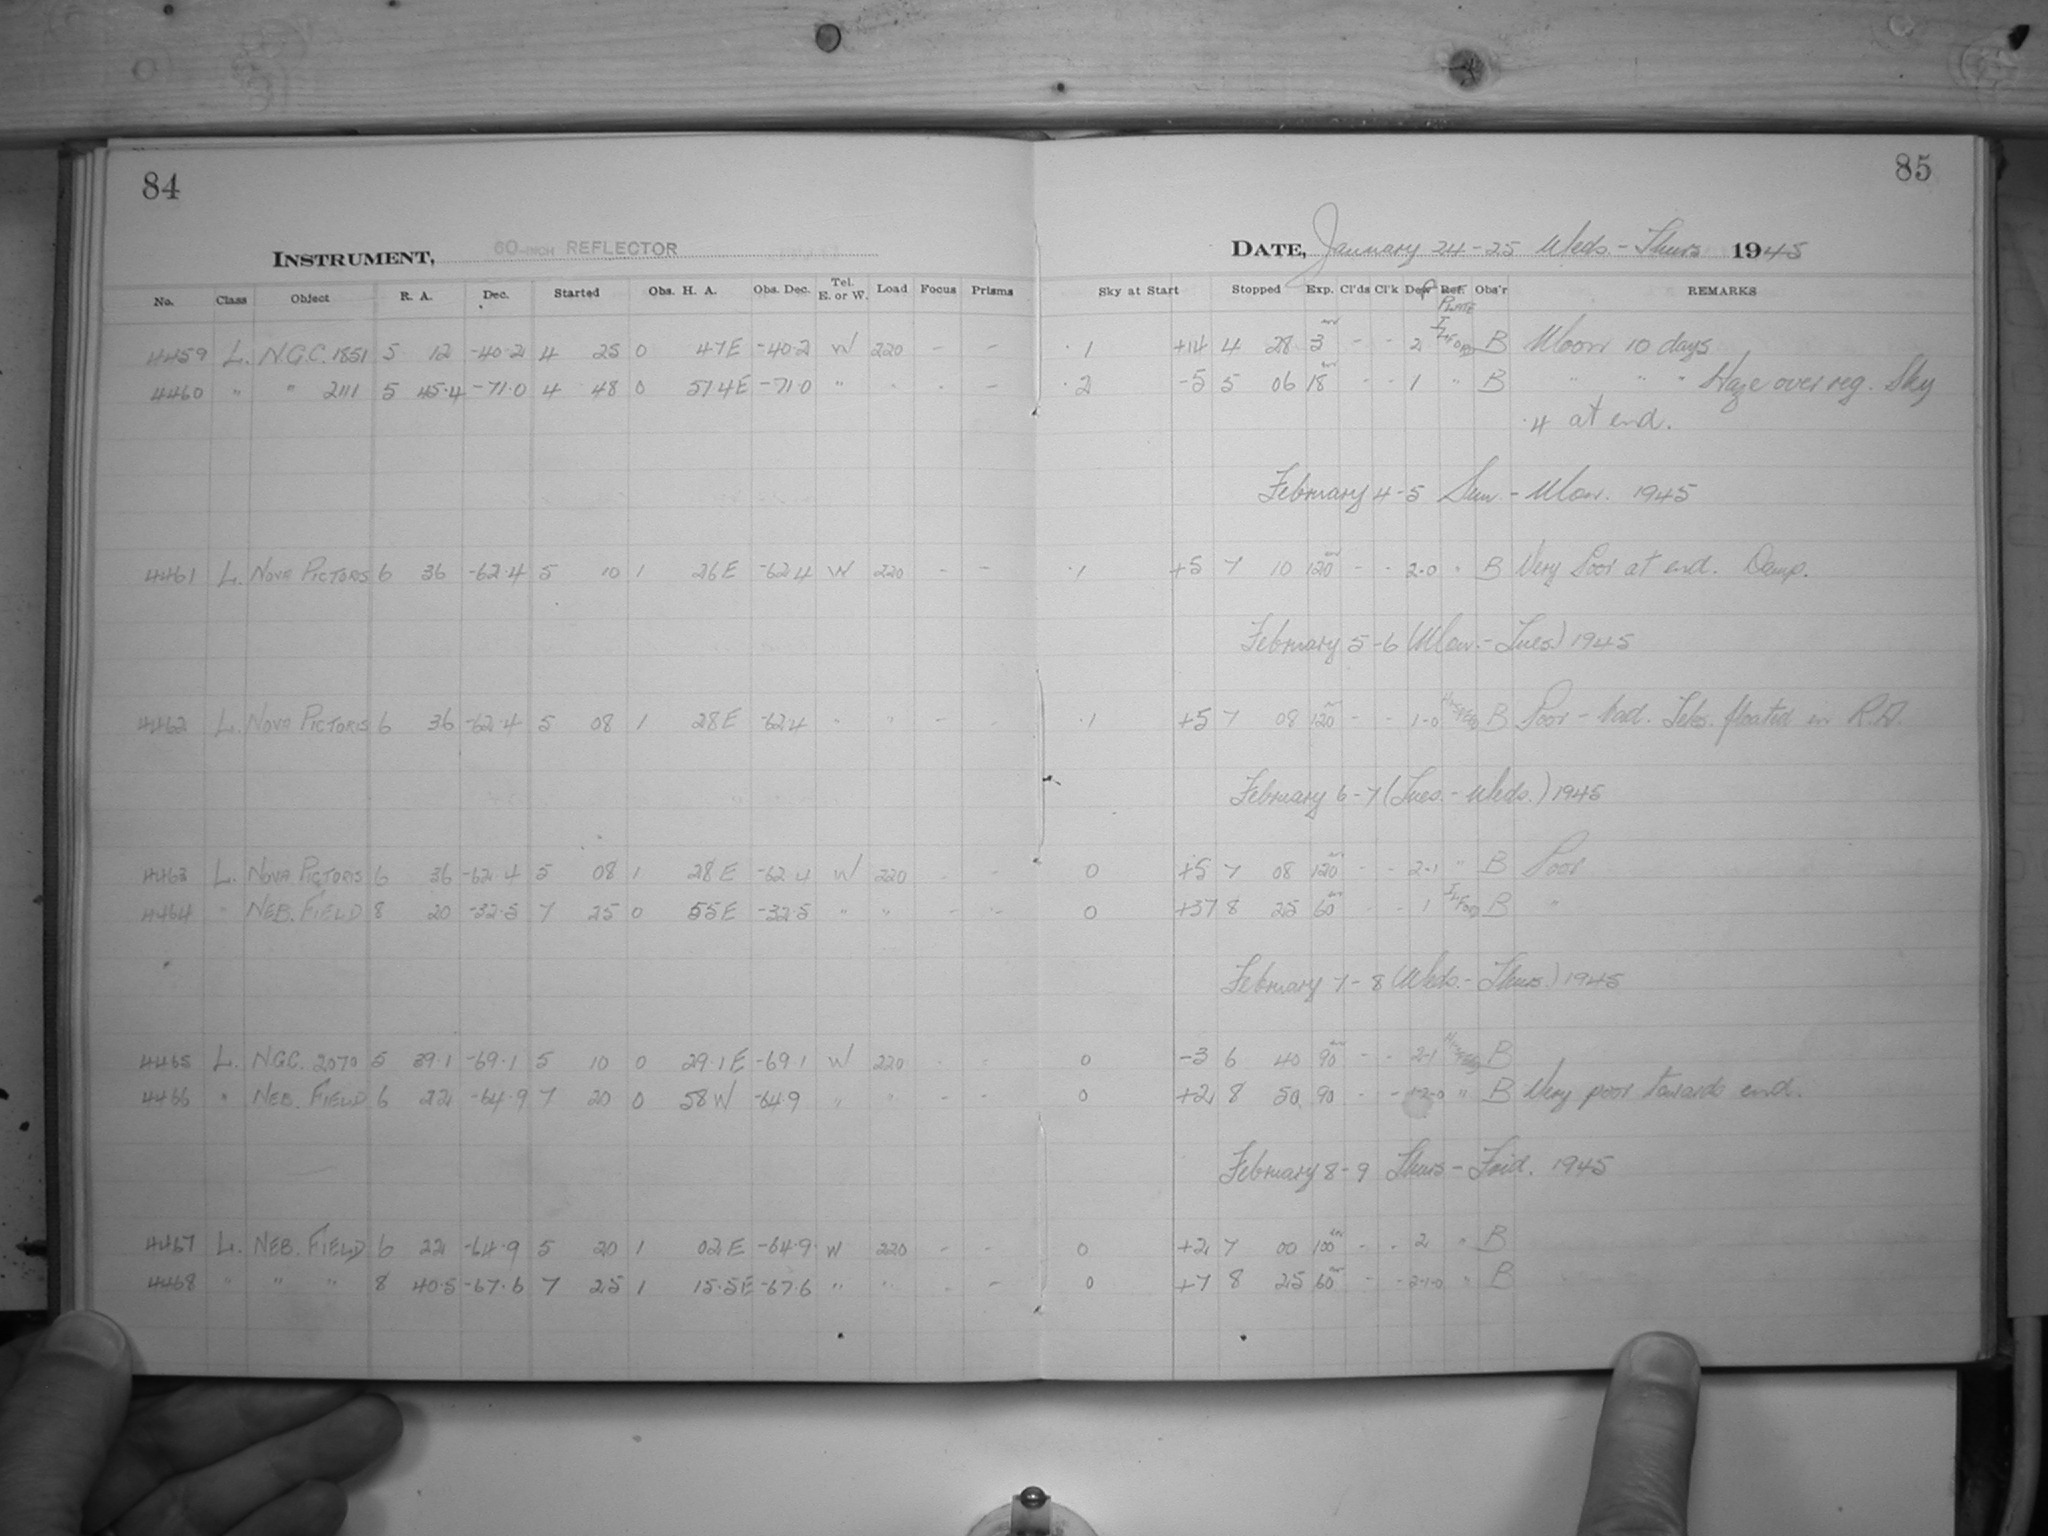 84
85
INSTRUMENT, 60-INCH REFLECTOR
DATE, January 24-25 Weds.-Thurs 1945
No. Class Object R. A. Dec. Started Obs. H. A. Obs. Dec. Tel. E. or W. Load Focus Prisms Sky at Start Stopped Exp. Cl'ds Cl'k Dew Ref. PLATE Obs'r REMARKS
4459 L. N.G.C. 1851 5 12 -40.2 4 25 0 47E -40.2 W 220 - - .1 +14 4 28 3 - - 2 ILFORD B Moon 10 days
4460 " " 2111 5 45.4 -71.0 4 48 0 57.4E -71.0 " " - - .2 -5 5 06 18 - - 1 " B " " " Haze over reg. Sky
.4 at end.
February 4-5 Sun. - Mon. 1945
4461 L. NOVA PICTORIS 6 36 -62.4 5 10 1 26E -62.4 W 220 - - .1 +5 7 10 120 - - 2-0 " B Very Poor at end. Damp.
February 5-6 (Mon. - Tues) 1945
4462 L. NOVA PICTORIS 6 36 -62.4 5 08 1 28E -62.4 " " - - .1 +5 7 08 120 - - 1-0 B Poor - bad. Teles. floated in R.A.
February 6-7 (Tues. - Weds.) 1945
4463 L. NOVA PICTORIS 6 36 -62.4 5 08 1 28E -62.4 W 220 - - 0 +5 7 08 120 - - 2-1 " B Poor
4464 " NEB. FIELD 8 20 -32.5 7 25 0 55E -32.5 " " - - 0 +37 8 25 60 - - 1 ILFORD B "
February 7-8 (Weds. - Thurs.) 1945
4465 L. N.G.C. 2070 5 39.1 -69.1 5 10 0 29.1E -69.1 W 220 - - 0 -3 6 40 90 - - 2-1 B
4466 " NEB. FIELD 6 22 -64.9 7 20 0 58W -64.9 " " - - 0 +2 8 50 90 - - " B Very poor towards end.
February 8-9 Thurs - Frid. 1945
4467 L. NEB. FIELD 6 22 -64.9 5 20 1 02E -64.9 W 220 - - 0 +2 7 00 100 - - 2 " B
4468 " " " 8 40.5 -67.6 7 25 1 15.5E -67.6 " " - - 0 +7 8 25 60 - - 2-1-0 " B